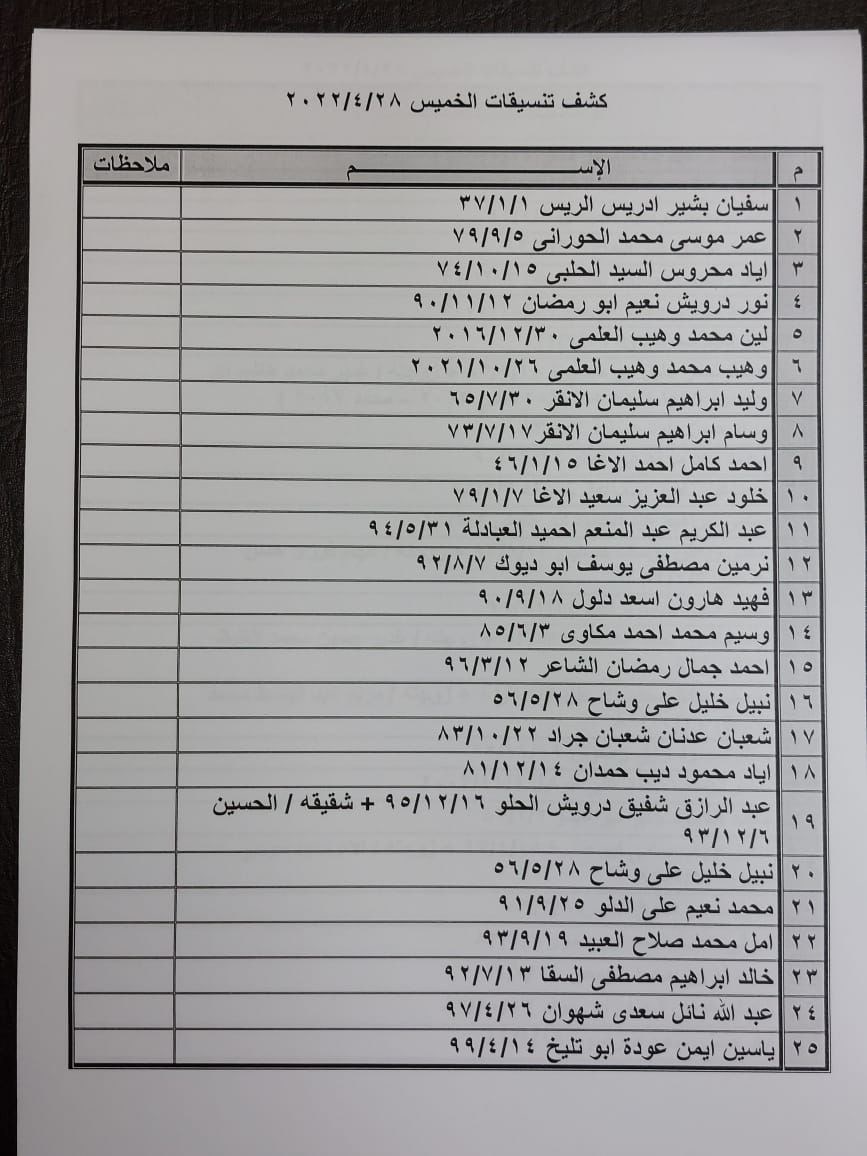 كشف تنسيقات الخميس ٢٠٢٢/٤/٢٨
م الإســـــــــــــــــــم ملاحظات
١ سفيان بشير ادريس الريس ٣٧/١/١
٢ عمر موسى محمد الحورانى ٧٩/٩/٥
٣ اياد محروس السيد الحلبى ٧٤/١٠/١٥
٤ نور درويش نعيم ابو رمضان ٩٠/١١/١٢
٥ لين محمد وهيب العلمى ٢٠١٦/١٢/٣٠
٦ وهيب محمد وهيب العلمى ٢٠٢١/١٠/٢٦
٧ وليد ابراهيم سليمان الانقر ٦٥/٧/٣٠
٨ وسام ابراهيم سليمان الانقر٧٣/٧/١٧
٩ احمد كامل احمد الاغا ٤٦/١/١٥
١٠ خلود عبد العزيز سعيد الاغا ٧٩/١/٧
١١ عبد الكريم عبد المنعم احميد العبادلة ٩٤/٥/٣١
١٢ نرمين مصطفى يوسف ابو ديوك ٩٢/٨/٧
١٣ فهيد هارون اسعد دلول ٩٠/٩/١٨
١٤ وسيم محمد احمد مكاوى ٨٥/٦/٣
١٥ احمد جمال رمضان الشاعر ٩٦/٣/١٢
١٦ نبيل خليل على وشاح ٥٦/٥/٢٨
١٧ شعبان عدنان شعبان جراد ٨٣/١٠/٢٢
١٨ اياد محمود ديب حمدان ٨١/١٢/١٤
١٩ عبد الرازق شفيق درويش الحلو ٩٥/١٢/١٦ + شقيقه / الحسين
٩٣/١٢/٦
٢٠ نبيل خليل على وشاح ٥٦/٥/٢٨
٢١ محمد نعيم على الدلو ٩١/٩/٢٥
٢٢ امل محمد صلاح العبيد ٩٣/٩/١٩
٢٣ خالد ابراهيم مصطفى السقا ٩٢/٧/١٣
٢٤ عبد الله نائل سعدى شهوان ٩٧/٤/٢٦
٢٥ ياسين ايمن عودة ابو تليخ ٩٩/٤/١٤